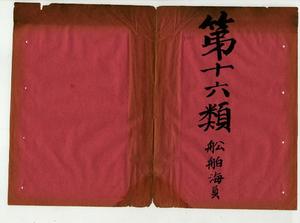 第十六類
船舶海員